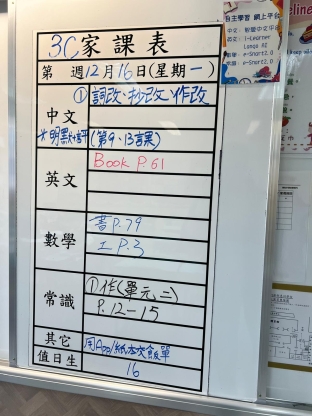 3C家課表
第 週12月16日(星期一)
中文
①詞改、抄改、作改
*明默+評(第9、13言果)
英文
Book P.61
數學
書P.79
工P.3
常識
①作(單元二)
P.12-15
其它
用App/紙本交飯單
值日生
16
自主學習 網上平台
中文:
英文: i-Learner
Longo AI
數學: e-Smart2.0
常識: e-Smart2.0